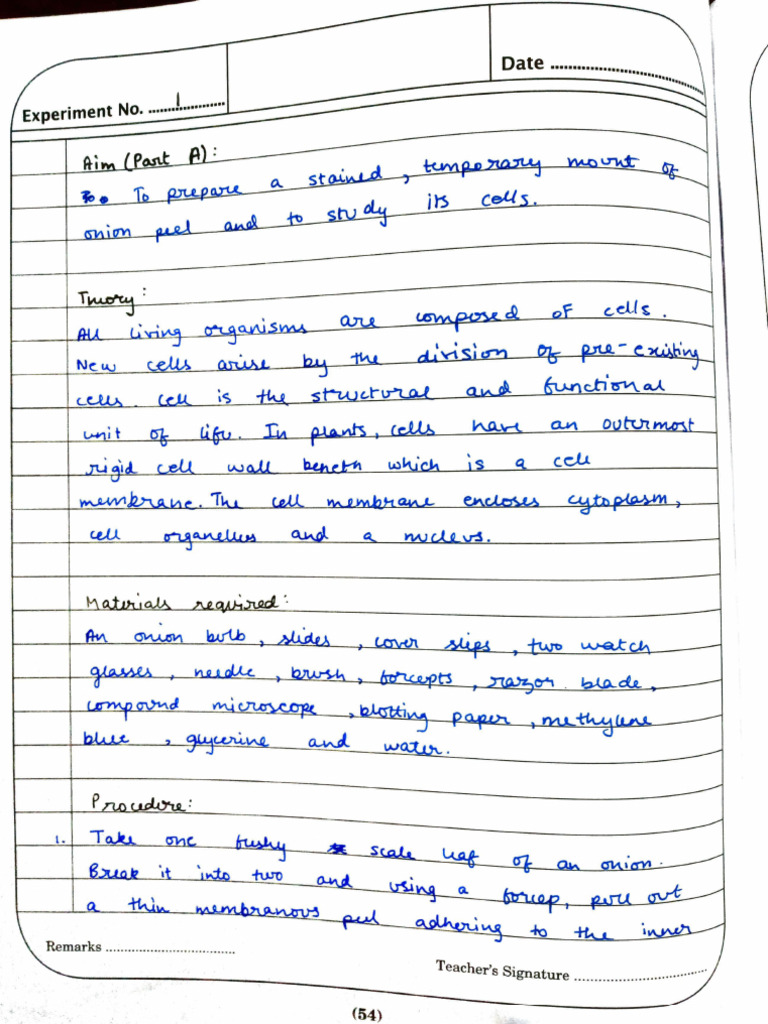 Experiment No. ........1............
Date ................................
Aim (Part A) :
To prepare a stained, temporary mount of
onion peel and to study its cells.
Theory :
All living organisms are composed of cells.
New cells arise by the division of pre-existing
cells. Cell is the structural and functional
unit of life. In plants, cells have an outermost
rigid cell wall beneth which is a cell
membrane. The cell membrane encloses cytoplasm,
cell organelles and a nucleus.
Materials required :
An onion bulb, slides, cover slips, two watch
glasses, needle, brush, forcepts, razor blade,
compound microscope, blotting paper, methylene
blue, glycerine and water.
Procedure :
1. Take one fushy scale leaf of an onion.
Break it into two and using a forcep, pull out
a thin membranous peel adhering to the inner
Remarks ................................
Teacher's Signature ................................
(54)